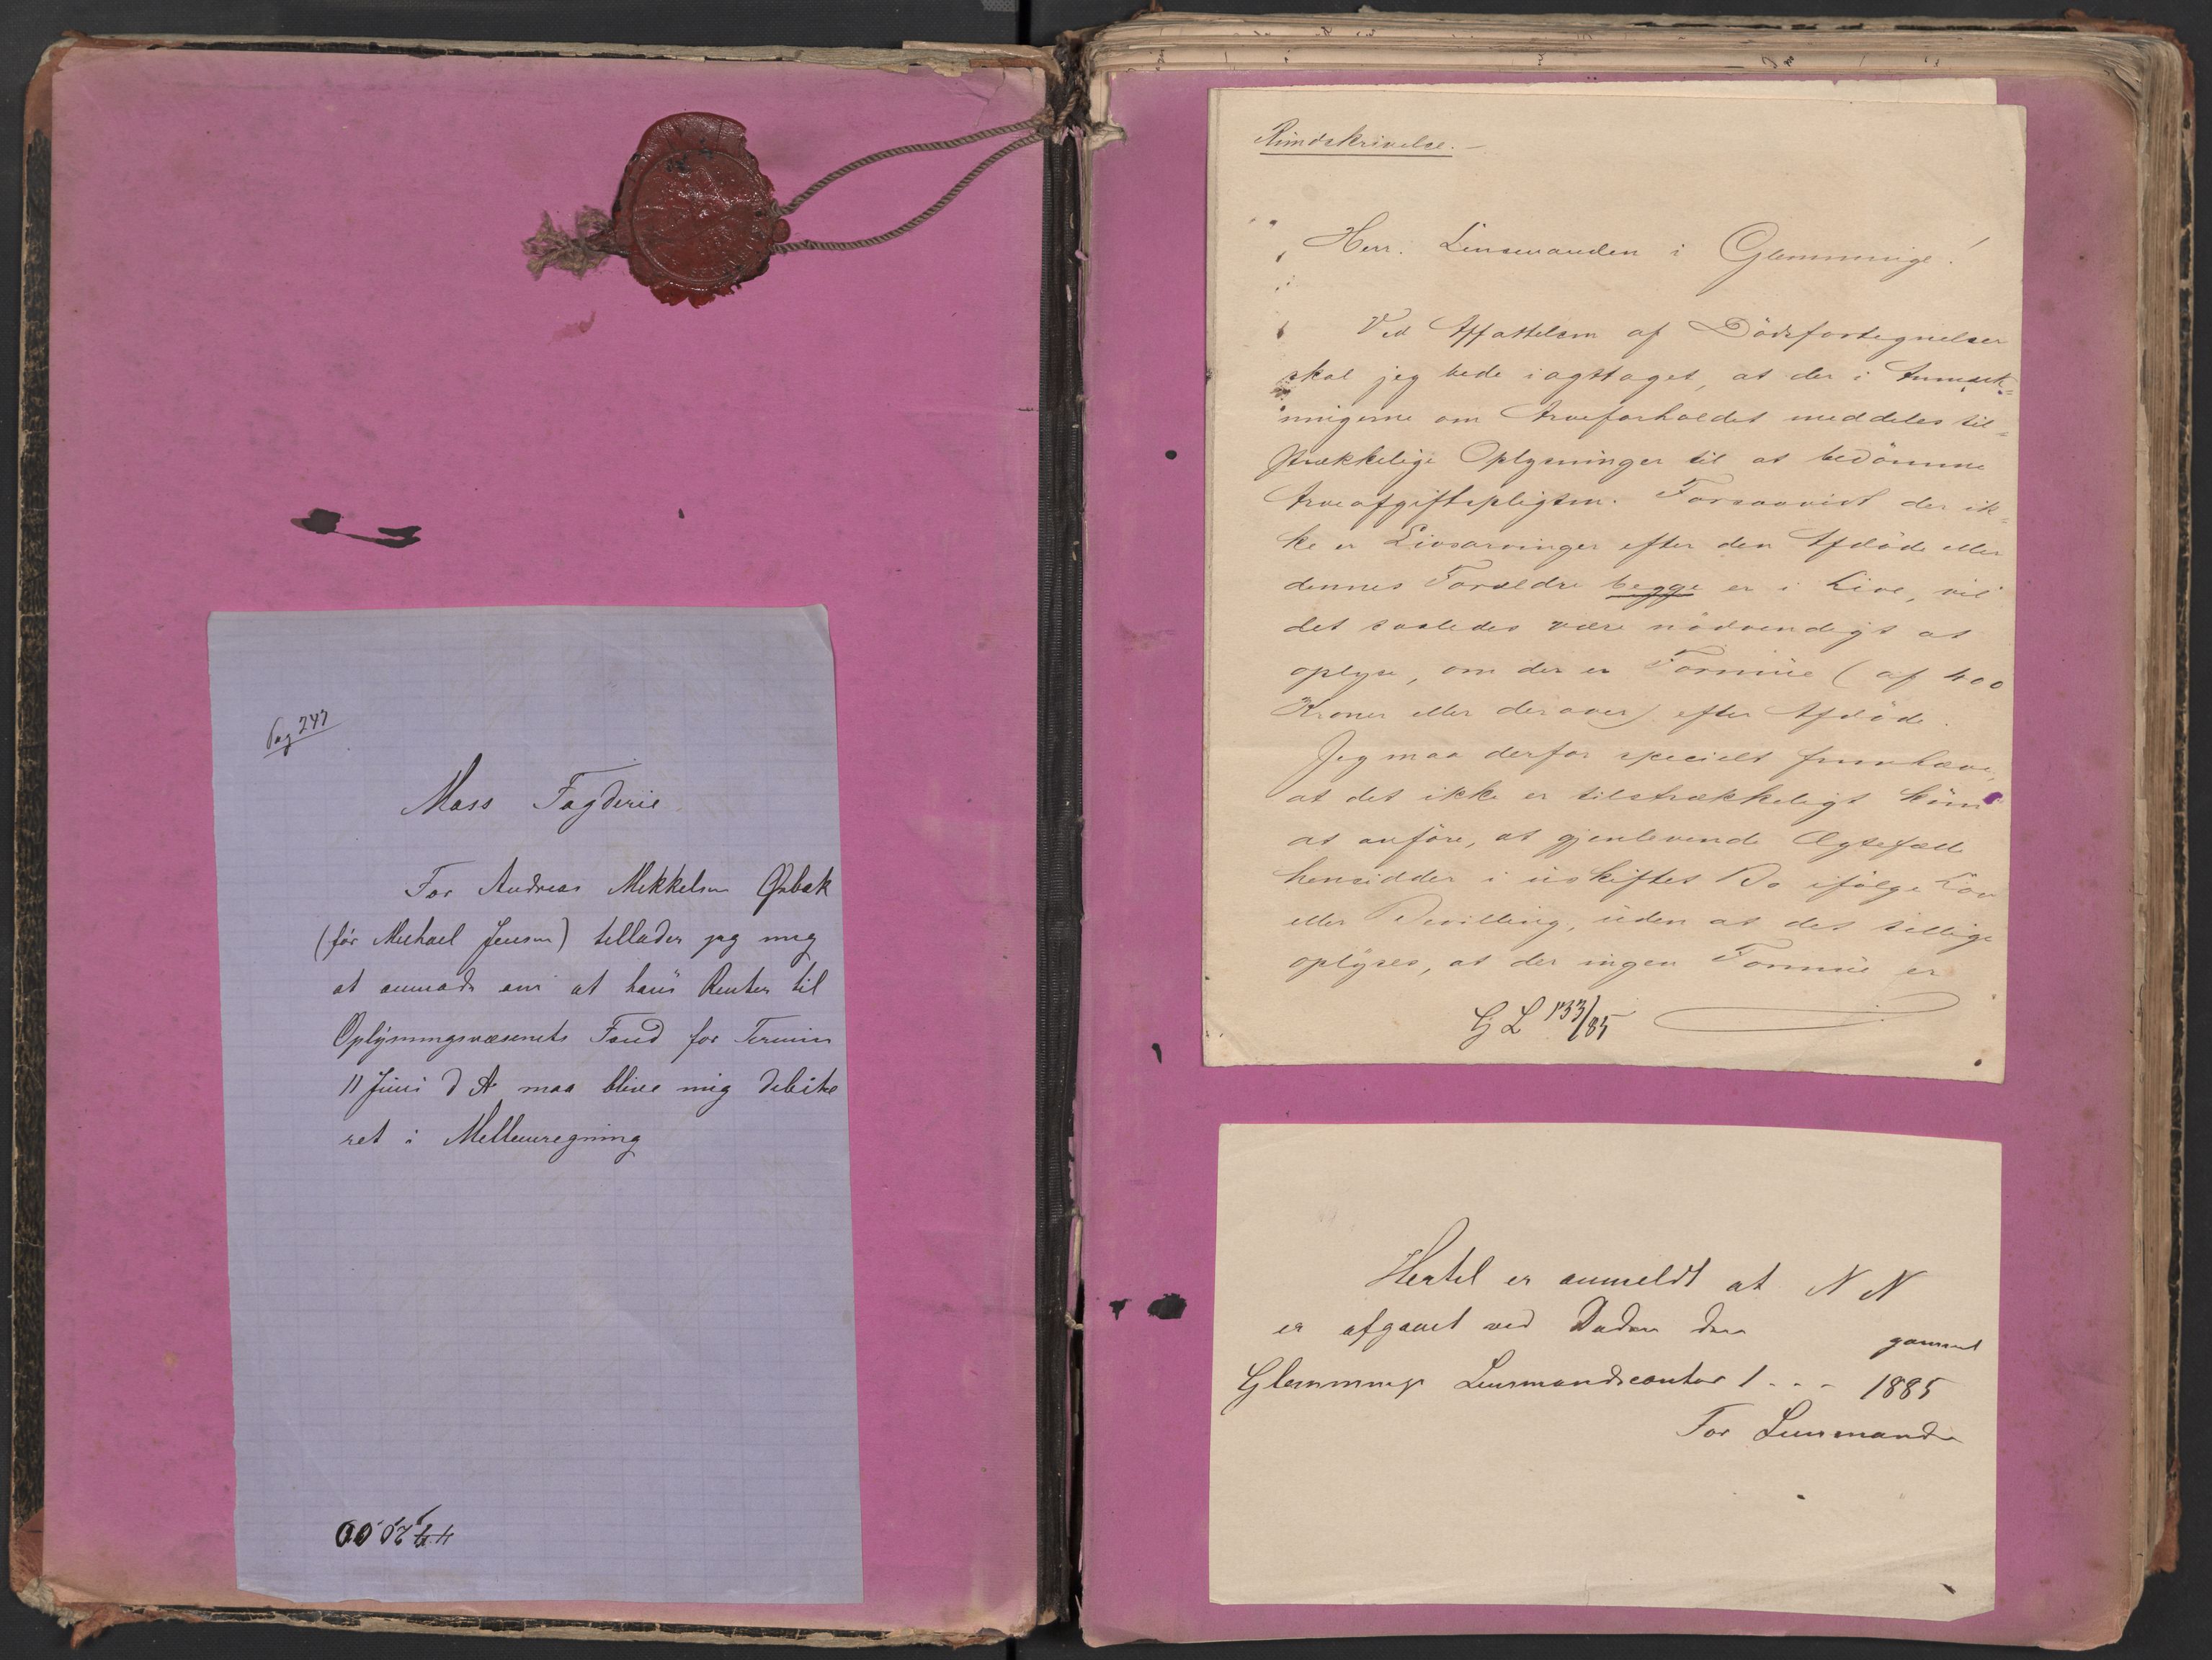 Pag 247
Moss Fogderie
For Andreas Mikkelsen
(før Michael Jensen) tillader jeg mig
at anmode om at hans Renter til
Oplysningsvæsenets Fond for Termin
11 Juni d A maa blive mig debite
ret i Mellemregning
Rundskrivelse.
Herr. Lensmanden i Glemminge!
Ved Affattelsen af Dödsfortegnelser
skal jeg bede iagttaget, at der i Anmærk=
ningerne om Arveforholdet meddeles til=
strækkelige Oplysninger til at bedömme
Arveafgiftspligten. Forsaavidt der ik=
ke er Livsarvinger efter den Afdöde eller
dennes Foreldre begge er i Live, vil
det saaledes være nödvendigt at
oplyse, om der er Formue (af 400
Kroner eller derover) efter Afdöde.
Jeg maa derfor specielt fremhæve,
at det ikke er tilstrækkeligt kün
at anföre, at gjenlevende Ægtefælle
hensidder i uskiftet Bo ifölge Lov
eller Bevilling, uden at det tillige
oplyses, at der ingen Formue er
G L 133/85
Hertil er anmeldt at N N
er afgaaet ved Døden den
gammel
Glemminge Lensmandscontor 1 . . - 1885
For Lensmanden